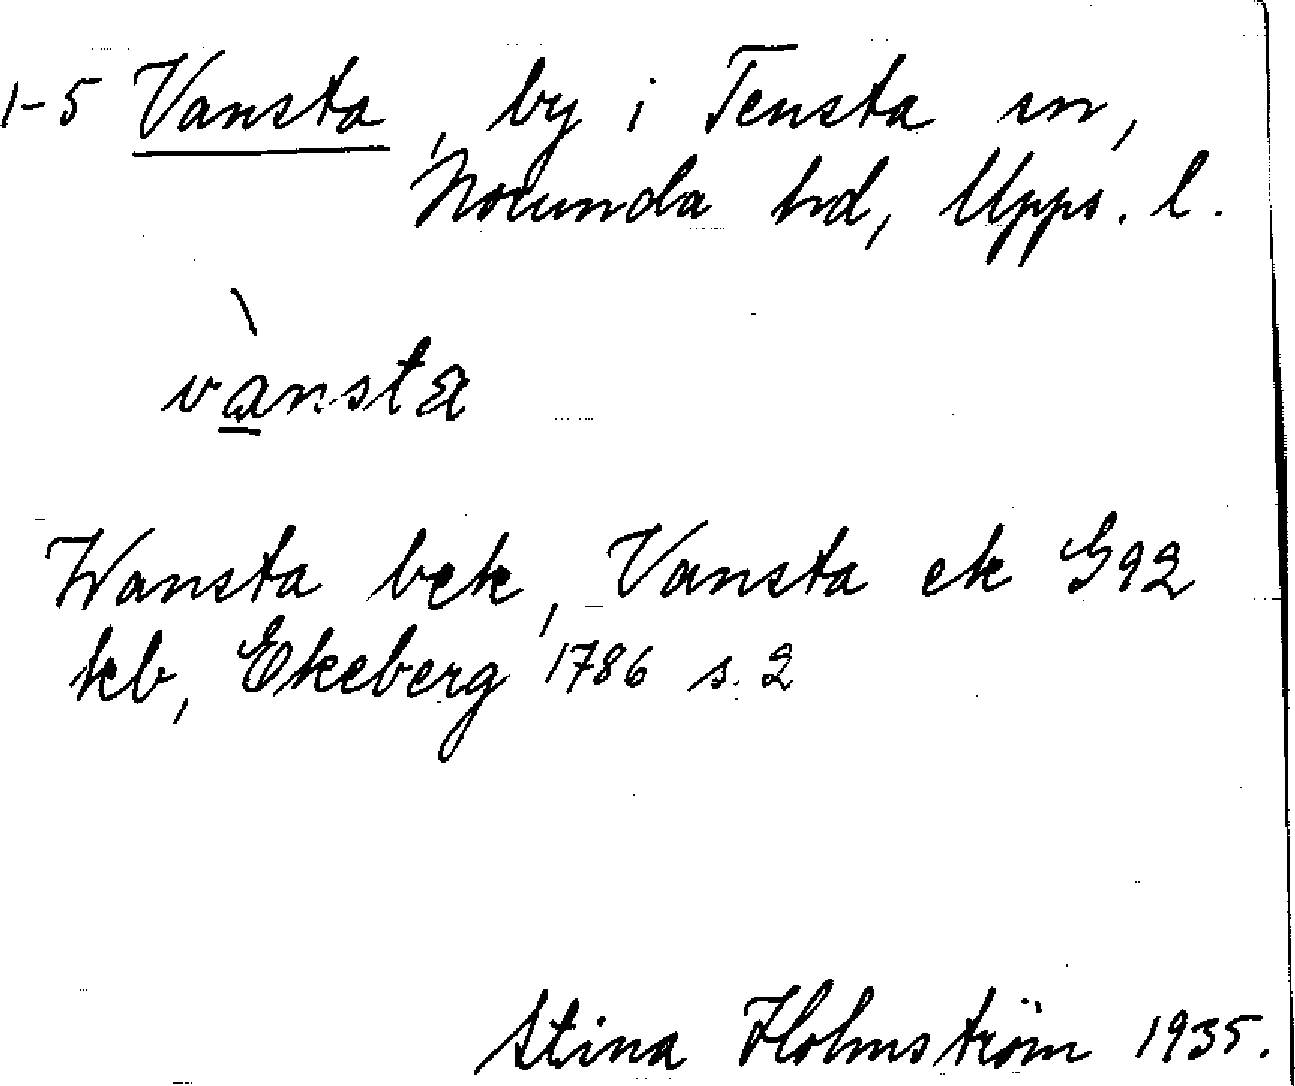 1-5 Vansta, by i Tensta sn,
Norunda hd, Upps. l.
vànsta
Wansta bek, Vansta ek G92
kb, Ekeberg 1786 s. 2
Stina Holmström 1935.